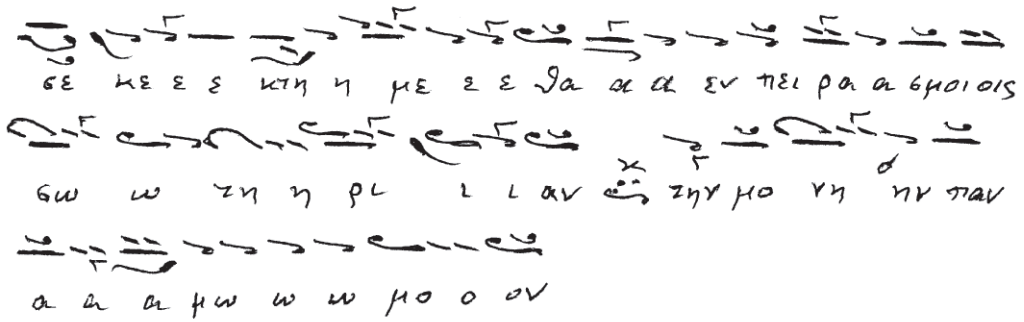 σε κε ε ε κτη η με ε ε θα α α εν πει ρα α σμοι οις
σω ω τη η ρι ι ι αν την μο νη ην παν
α α α μω ω ω μο ο ον